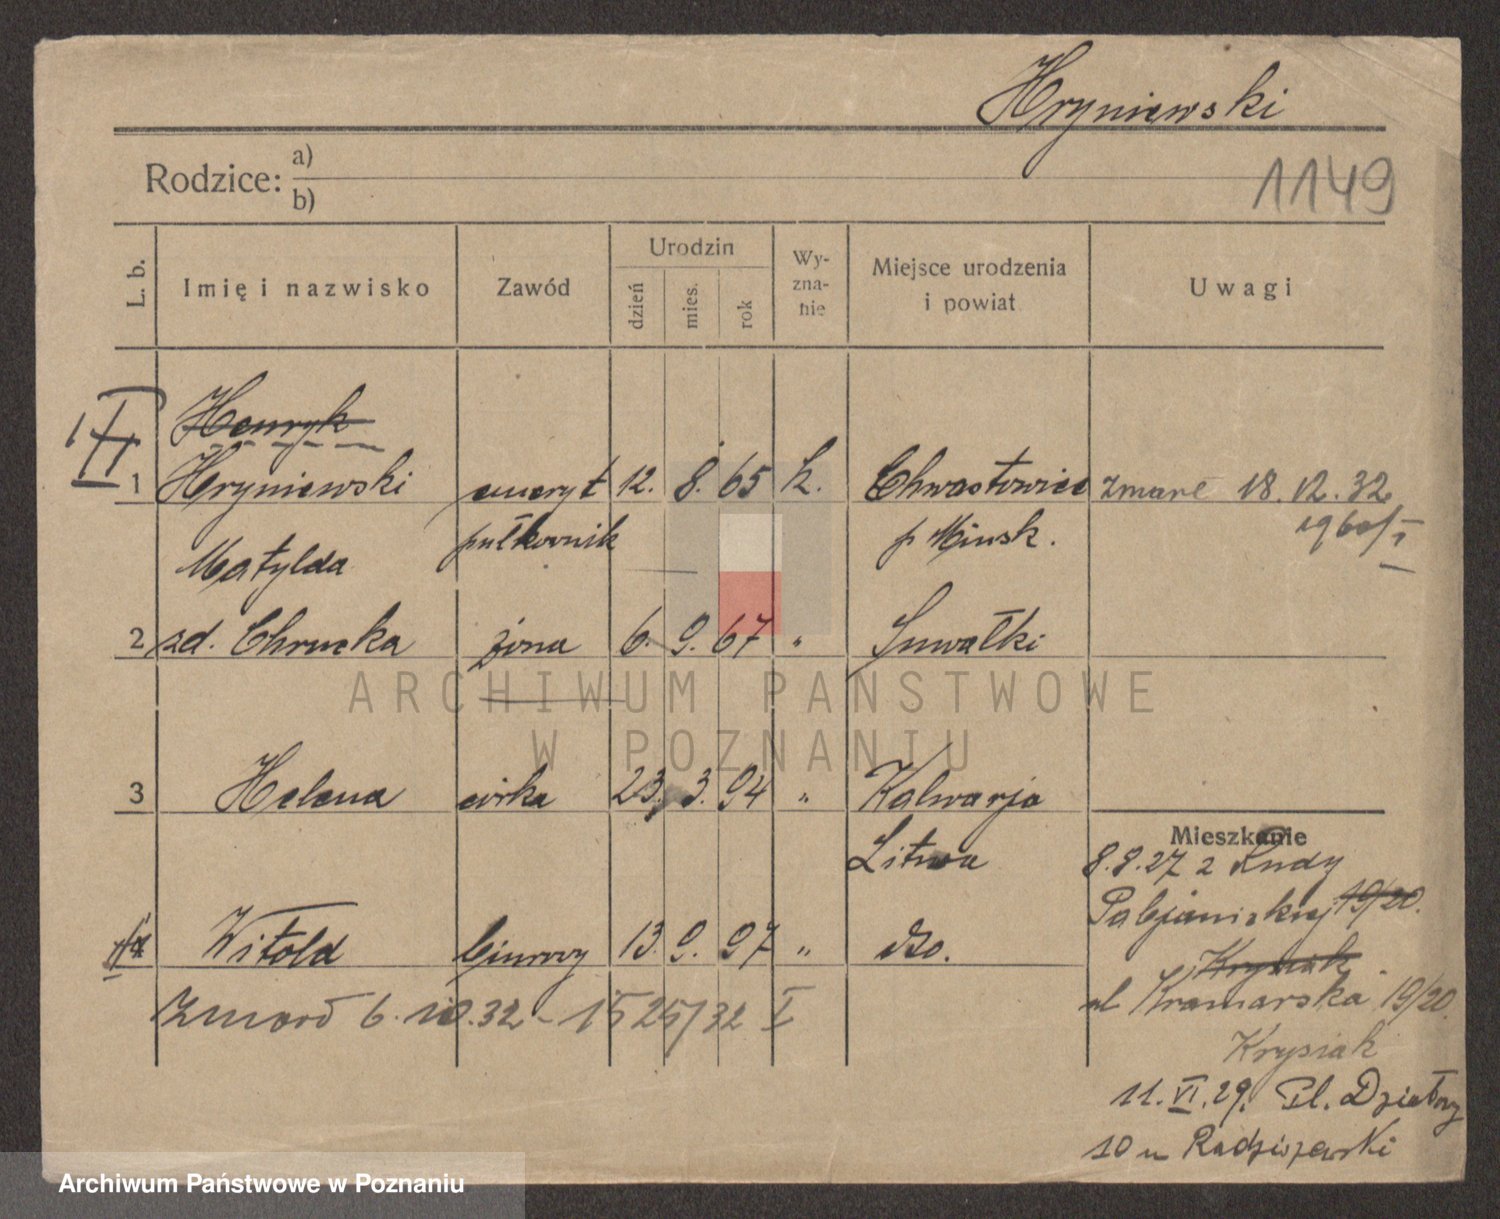 Hryniewski
Rodzice: a)
b)
1149
L. b.
Imię i nazwisko
Zawód
Urodzin
dzień
mies.
rok
Wy-
zna-
nie
Miejsce urodzenia
i powiat
Uwagi
Henryk
1 Hryniewski emeryt 12. 8. 65 k. Chwastowice zmarł 18. 12. 32
pułkownik p Mińsk. 1960/I
Matylda
2 zd. Chrucka żona 6. 9. 67 " Suwałki
ARCHIWUM PAŃSTWOWE
W POZNANIU
3 Helena córka 23. 3. 94 " Kalwarja
Litwa
Mieszkanie
8.8.27 z Rudy
Pabjanickiej 19/20.
4 Witold biurowy 13. 9. 97 " dto.
Krysiak
ul Kramarska 19/20.
Zmarł 6. 10. 32 - 1525/32 I
Krysiak
11. VI. 29. Pl. Działowy
10 u Radziszewski
Archiwum Państwowe w Poznaniu